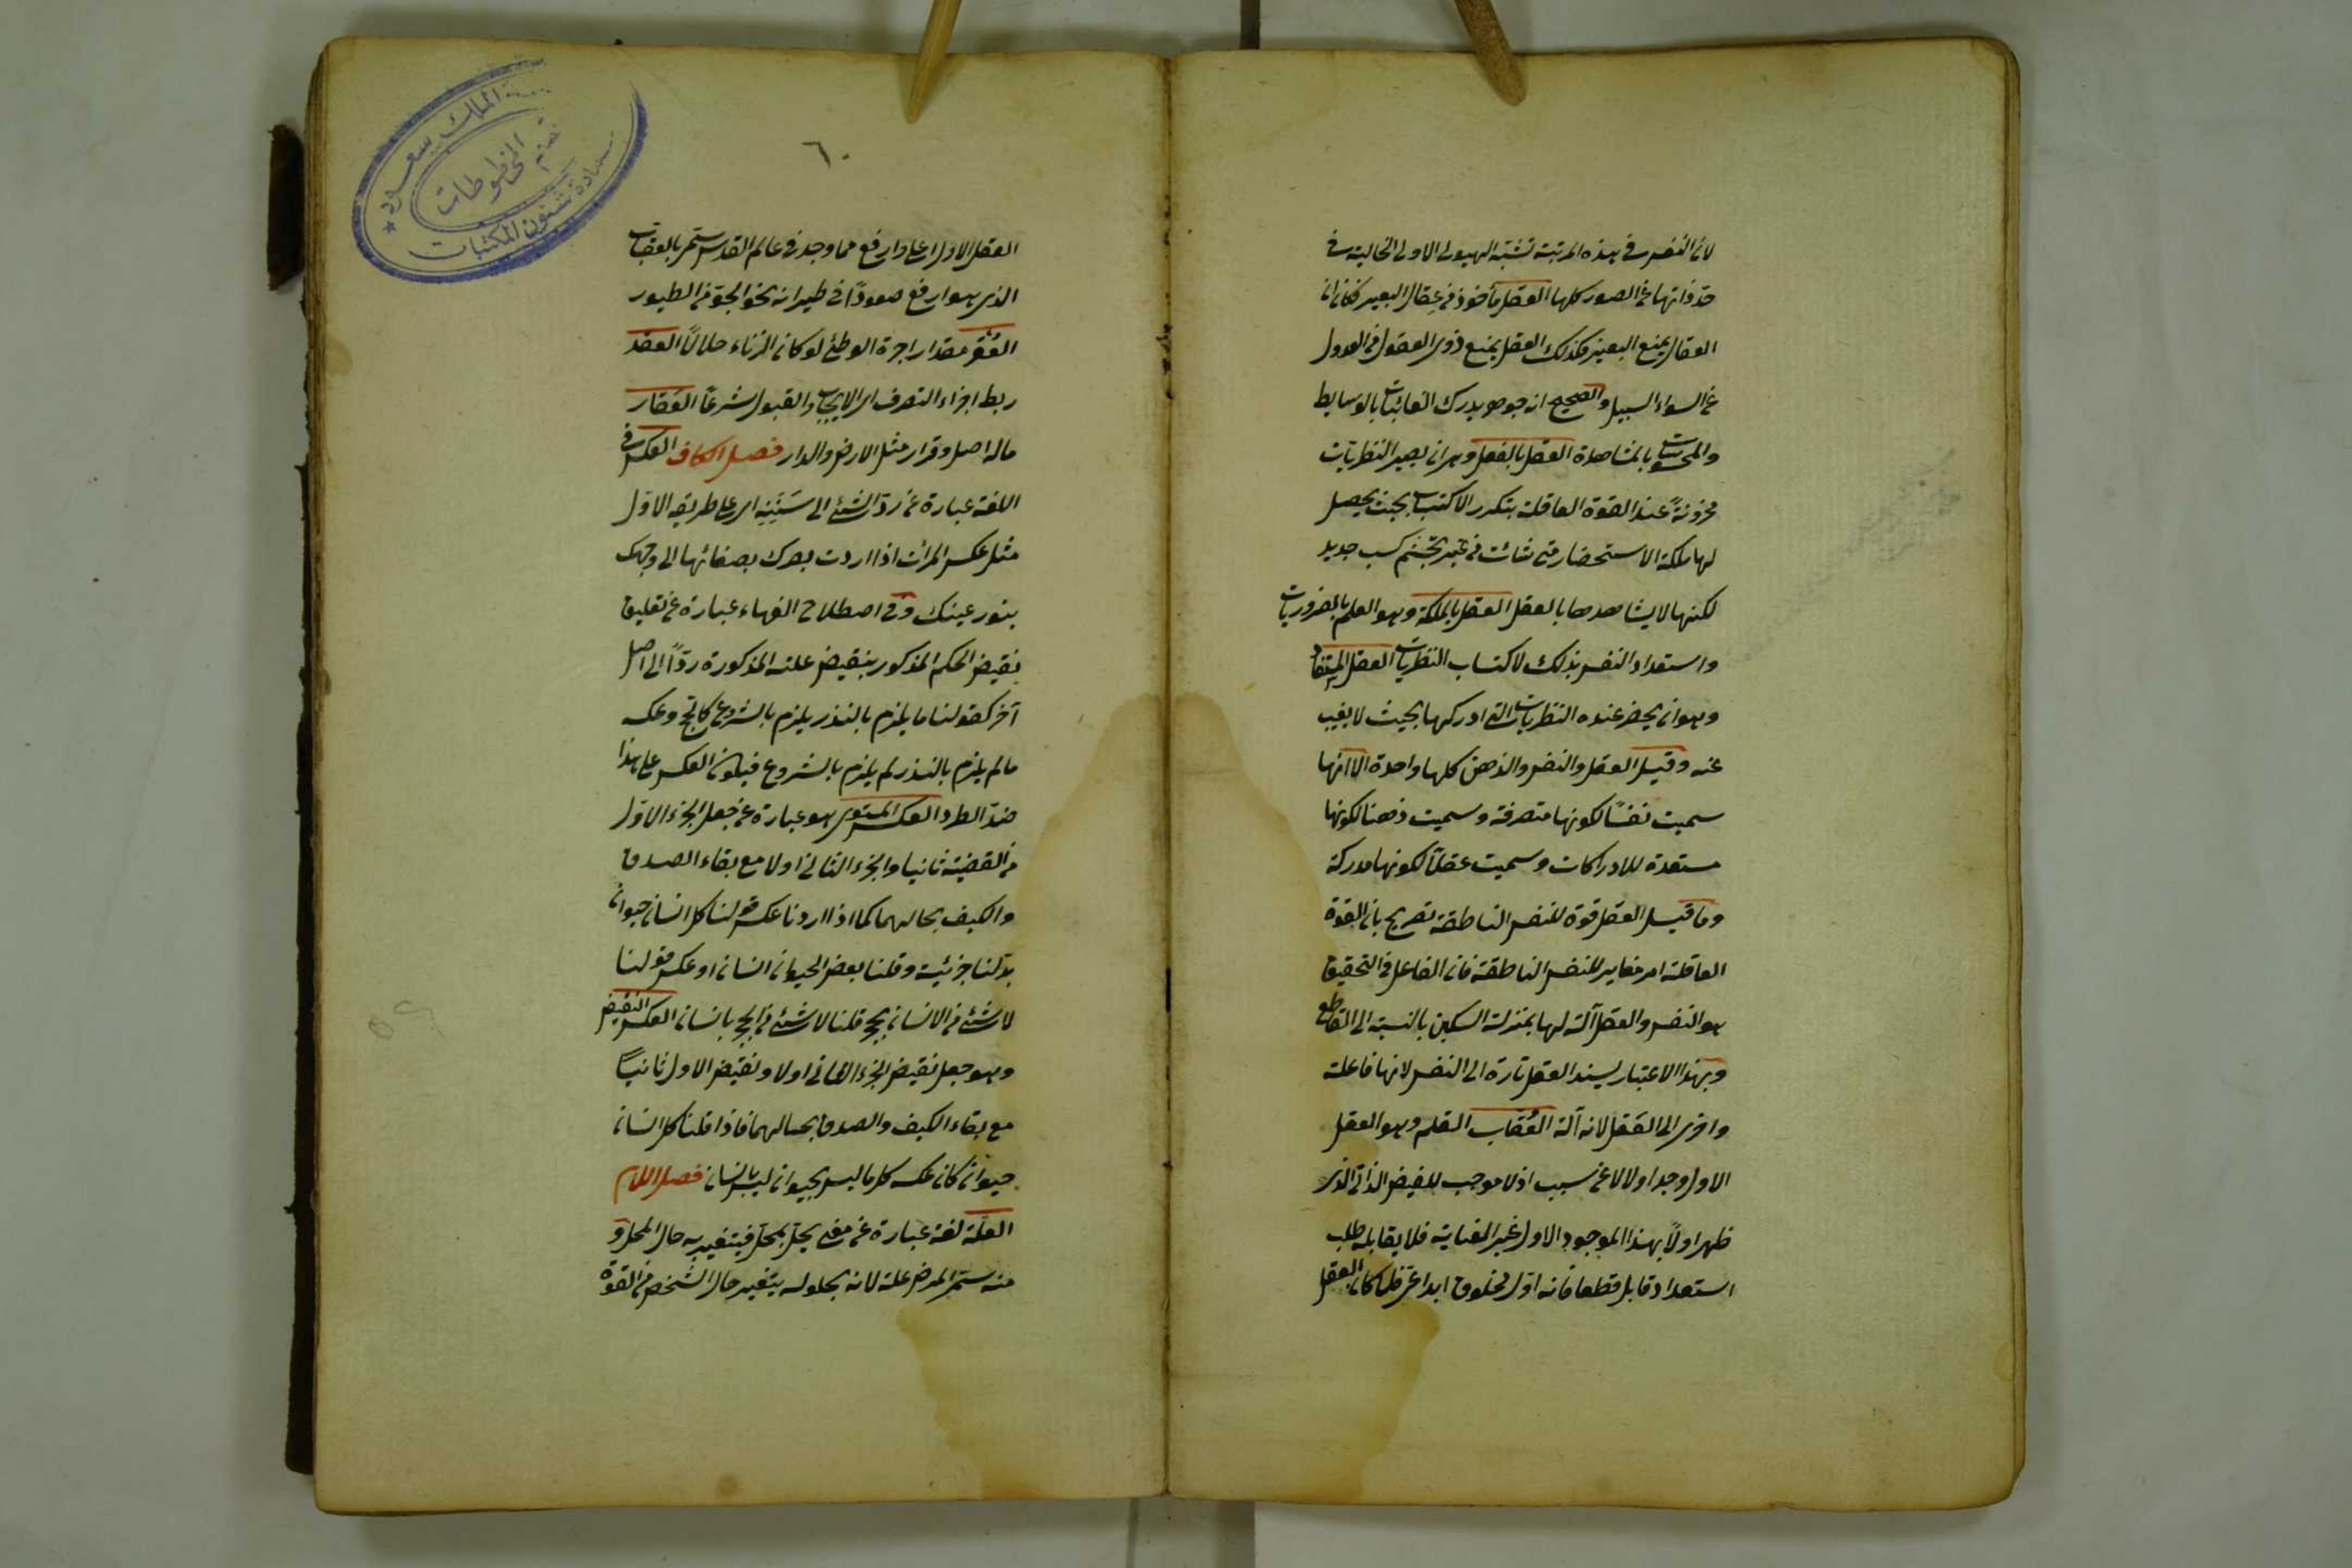 لان النفس فى هذه المرتبة تشبه الهيولى الاولى الخالية فى
حد ذاتها عن الصور كلها العقل مأخوذ من عقال البعير فكما ان
العقال يمنع البعير فكذلك العقل يمنع ذوى العقول من العدول
عن السواء السبيل والصحيح انه جوهر يدرك الغائبات بالوسايط
والمحسوسات بالمشاهدة العقل بالفعل وهو ان يصير النظريات
مخزونةً عند القوة العاقلة بتكرر الاكتساب بحيث يحصل
لها ملكة الاستحضار متى شائت من غير تجشم كسب جديد
لكنها لا يشاهدها بالعقل العقل بالملكة وهو العلم بالضروريات
واستعداد النفس بذلك لاكتساب النظريات العقل المستفاد
وهو ان يحضر عنده النظريات التى ادركها بحيث لا يغيب
عنه وقيل العقل والنفس والذهن كلها واحدة الا انها
سميت نفسًا لكونها متصرفة وسميت ذهنا لكونها
مستعدة للادراكات وسميت عقلاً لكونها مدركة
وما قيل العقل قوة للنفس الناطقة تصريح بان القوة
العاقلة امر مغاير للنفس الناطقة فان الفاعل فى التحقيق
هو النفس والعقل آلة لها بمنزلة السكين بالنسبة الى القاطع
وبهذا الاعتبار يسند العقل تارة الى النفس لانها فاعلة
واخرى الى العقل لانه آلة العُقاب القلم وهو العقل
الاول وجد اولا لا عن سبب اذ لا موجب للفيض الذاتى الذى
ظهر اولاً بهذا الموجود الاول غير العناية فلا يقابله طلب
استعداد قابل قطعا فانه اول مخلوق ابداعى فلما كان العقل
٦٠
العقل الاول اعلى وارفع مما وجد فى عالم القدس سمى بالعقاب
الذى هو ارفع صعودًا فى طيرانه نحو الجو من الطيور
العُقر مقدار اجرة الوطئ لو كان الزناء حلالاً العقد
ربط اجزاء التصرف اى الايجاب والقبول شرعًا العَقار
ماله اصل وقرار مثل الارض والدار فصل الكاف العكس فى
اللغة عبارة عن ردّ الشئ الى سَنَنِه اى على طريقه الاول
مثل عكس المرآت اذا اردت بصرك بصفائها الى وجهك
بنور عينك وفى اصطلاح الفهاء عبارة عن تعليق
نقيض الحكم المذكور بنقيض علته المذكورة ردّاً الى اصل
آخر كقولنا ما يلزم بالنذر يلزم بالشروع كالحج وعكسه
ما لم يلزم بالنذر لم يلزم بالشروع فيكون العكس على هذا
ضدّ الطرد العكس المستوى هو عبارة عن جعل الجزء الاول
من القضية ثانيا والجزء الثانى اولا مع بقاء الصدق
والكيف بحالهما كما اذا اردنا عكس قولنا كل انسان حيوان
بدّلنا جزئية وقلنا بعض الحيوان انسان او عكس قولنا
لا شئ من الانسان بحجر قلنا لا شئ من الحجر بانسان العكس النقيض
وهو جعل نقيض الجزء الثانى اولا ونقيض الاول ثانيًا
مع بقاء الكيف والصدق بحالهما فاذا قلنا كل انسان
حيوان كان عكسه كل ما ليس بحيوان ليس بانسان فصل اللام
العلّة لغة عبارة عن معنى يحلّ بمحلّ فيتغير به حال المحل و
منه سمى المرض علة لانه بحلوله يتغير حال الشخص من القوة
الملك سعود
قسم المخطوطات
عمادة شئون المكتبات